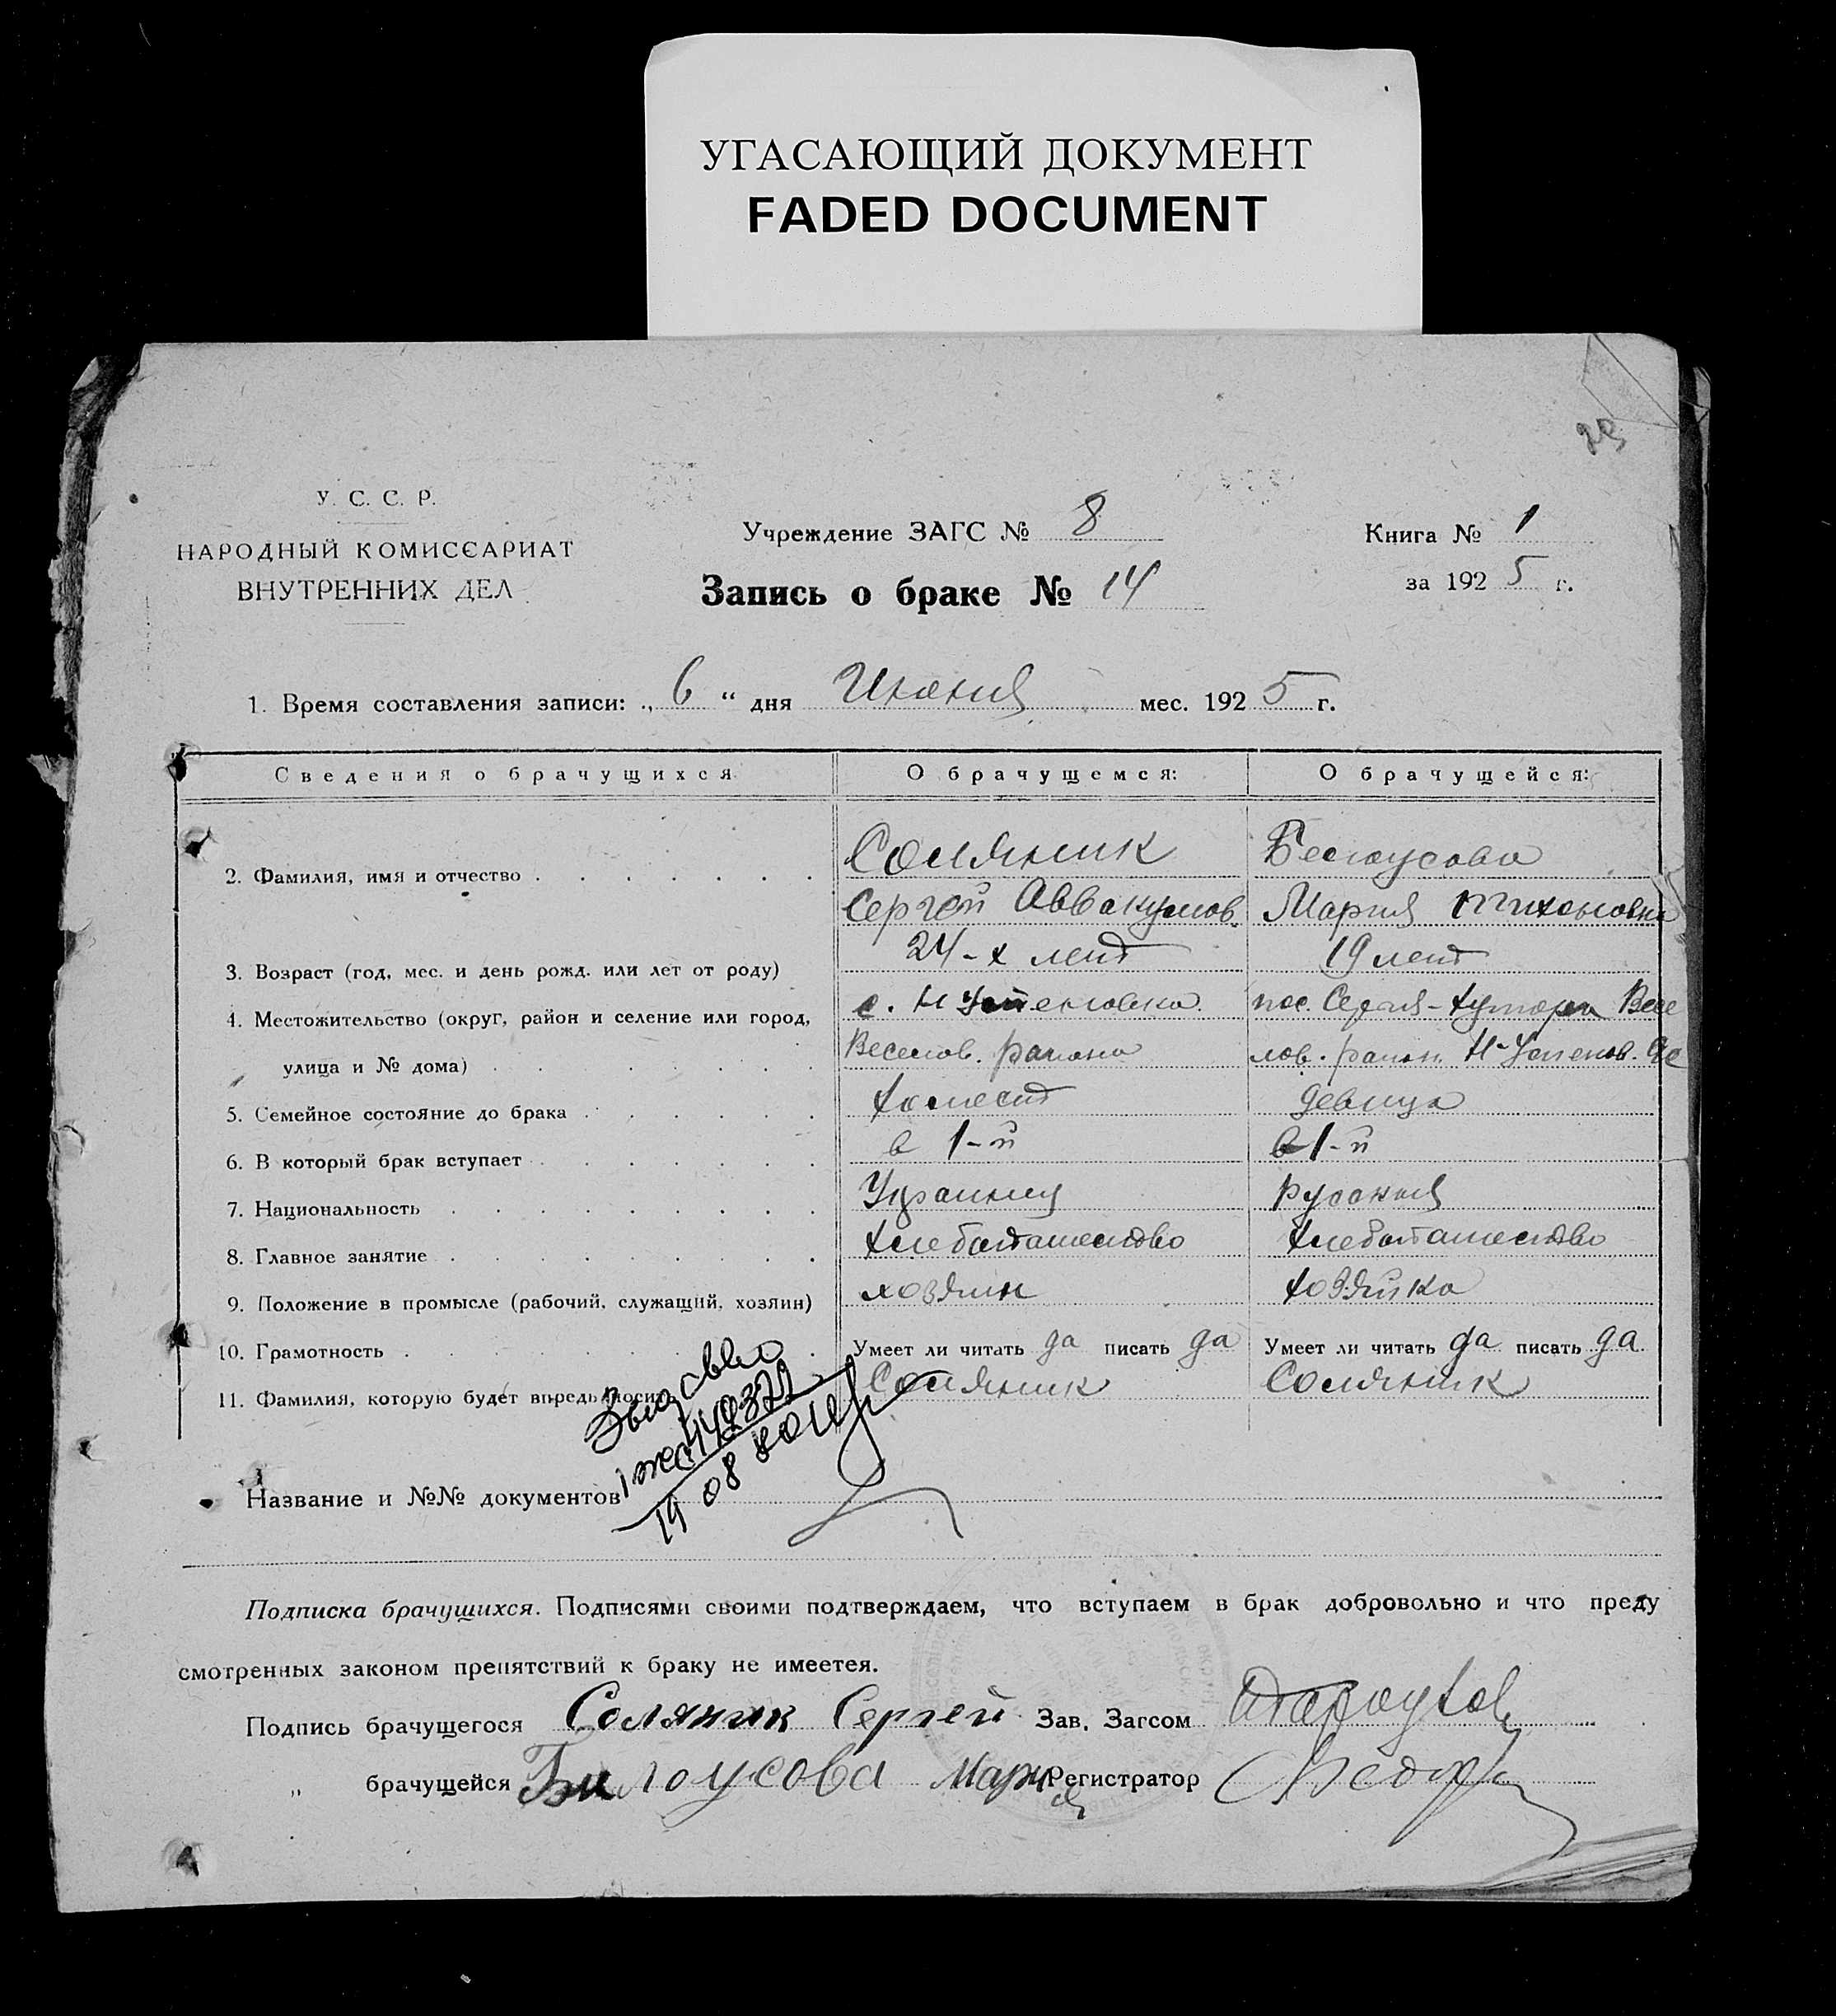 УГАСАЮЩИЙ ДОКУМЕНТ
FADED DOCUMENT
У. С. С. Р.
НАРОДНЫЙ КОМИССАРИАТ
ВНУТРЕННИХ ДЕЛ
Учреждение ЗАГС № 8
Запись о браке № 14
Книга № 1
за 1925 г.
1. Время составления записи: „6“ дня Июня мес. 1925 г.
Сведения о брачущихся О брачущемся: О брачущейся:
2. Фамилия, имя и отчество Соляник Белоусова
Сергей Аввакумов. Мария Тихоновна
3. Возраст (год, мес. и день рожд. или лет от роду) 24-х лет 19 лет
4. Местожительство (округ, район и селение или город, с. Н Успеновка. пос. Хутора Весе
улица и № дома) Веселов. района лов. район. Н-Успенов.
5. Семейное состояние до брака холост девица
6. В который брак вступает в 1-й в 1-й
7. Национальность русская
8. Главное занятие хлебопашество хлебопашество
9. Положение в промысле (рабочий, служащий, хозяин) хозяин хозяйка
10. Грамотность Умеет ли читать да писать да Умеет ли читать да писать да
11. Фамилия, которую будет впредь носить Соляник Соляник
Название и №№ документов
Подписка брачущихся. Подписями своими подтверждаем, что вступаем в брак добровольно и что преду
смотренных законом препятствий к браку не имеетея.
Подпись брачущегося Соляник Сергей Зав. Загсом
„ брачущейся Билоусова Мария Регистратор